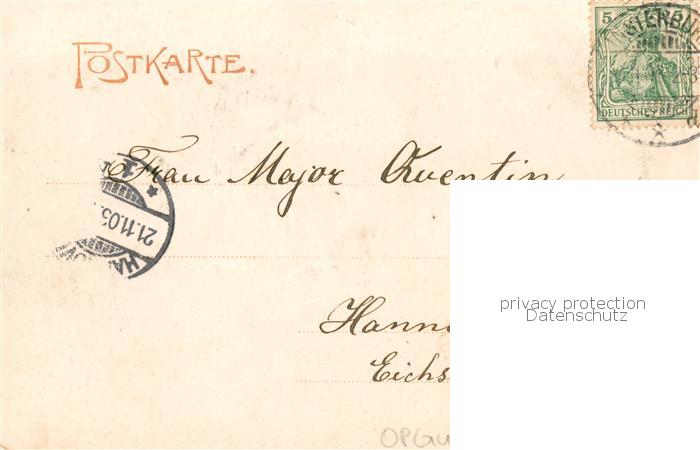 POSTKARTE.
5
DEUTSCHES REICH
Frau Major Quentin
21.11.05.
Hann
Eichs
privacy protection
Datenschutz
OPGu